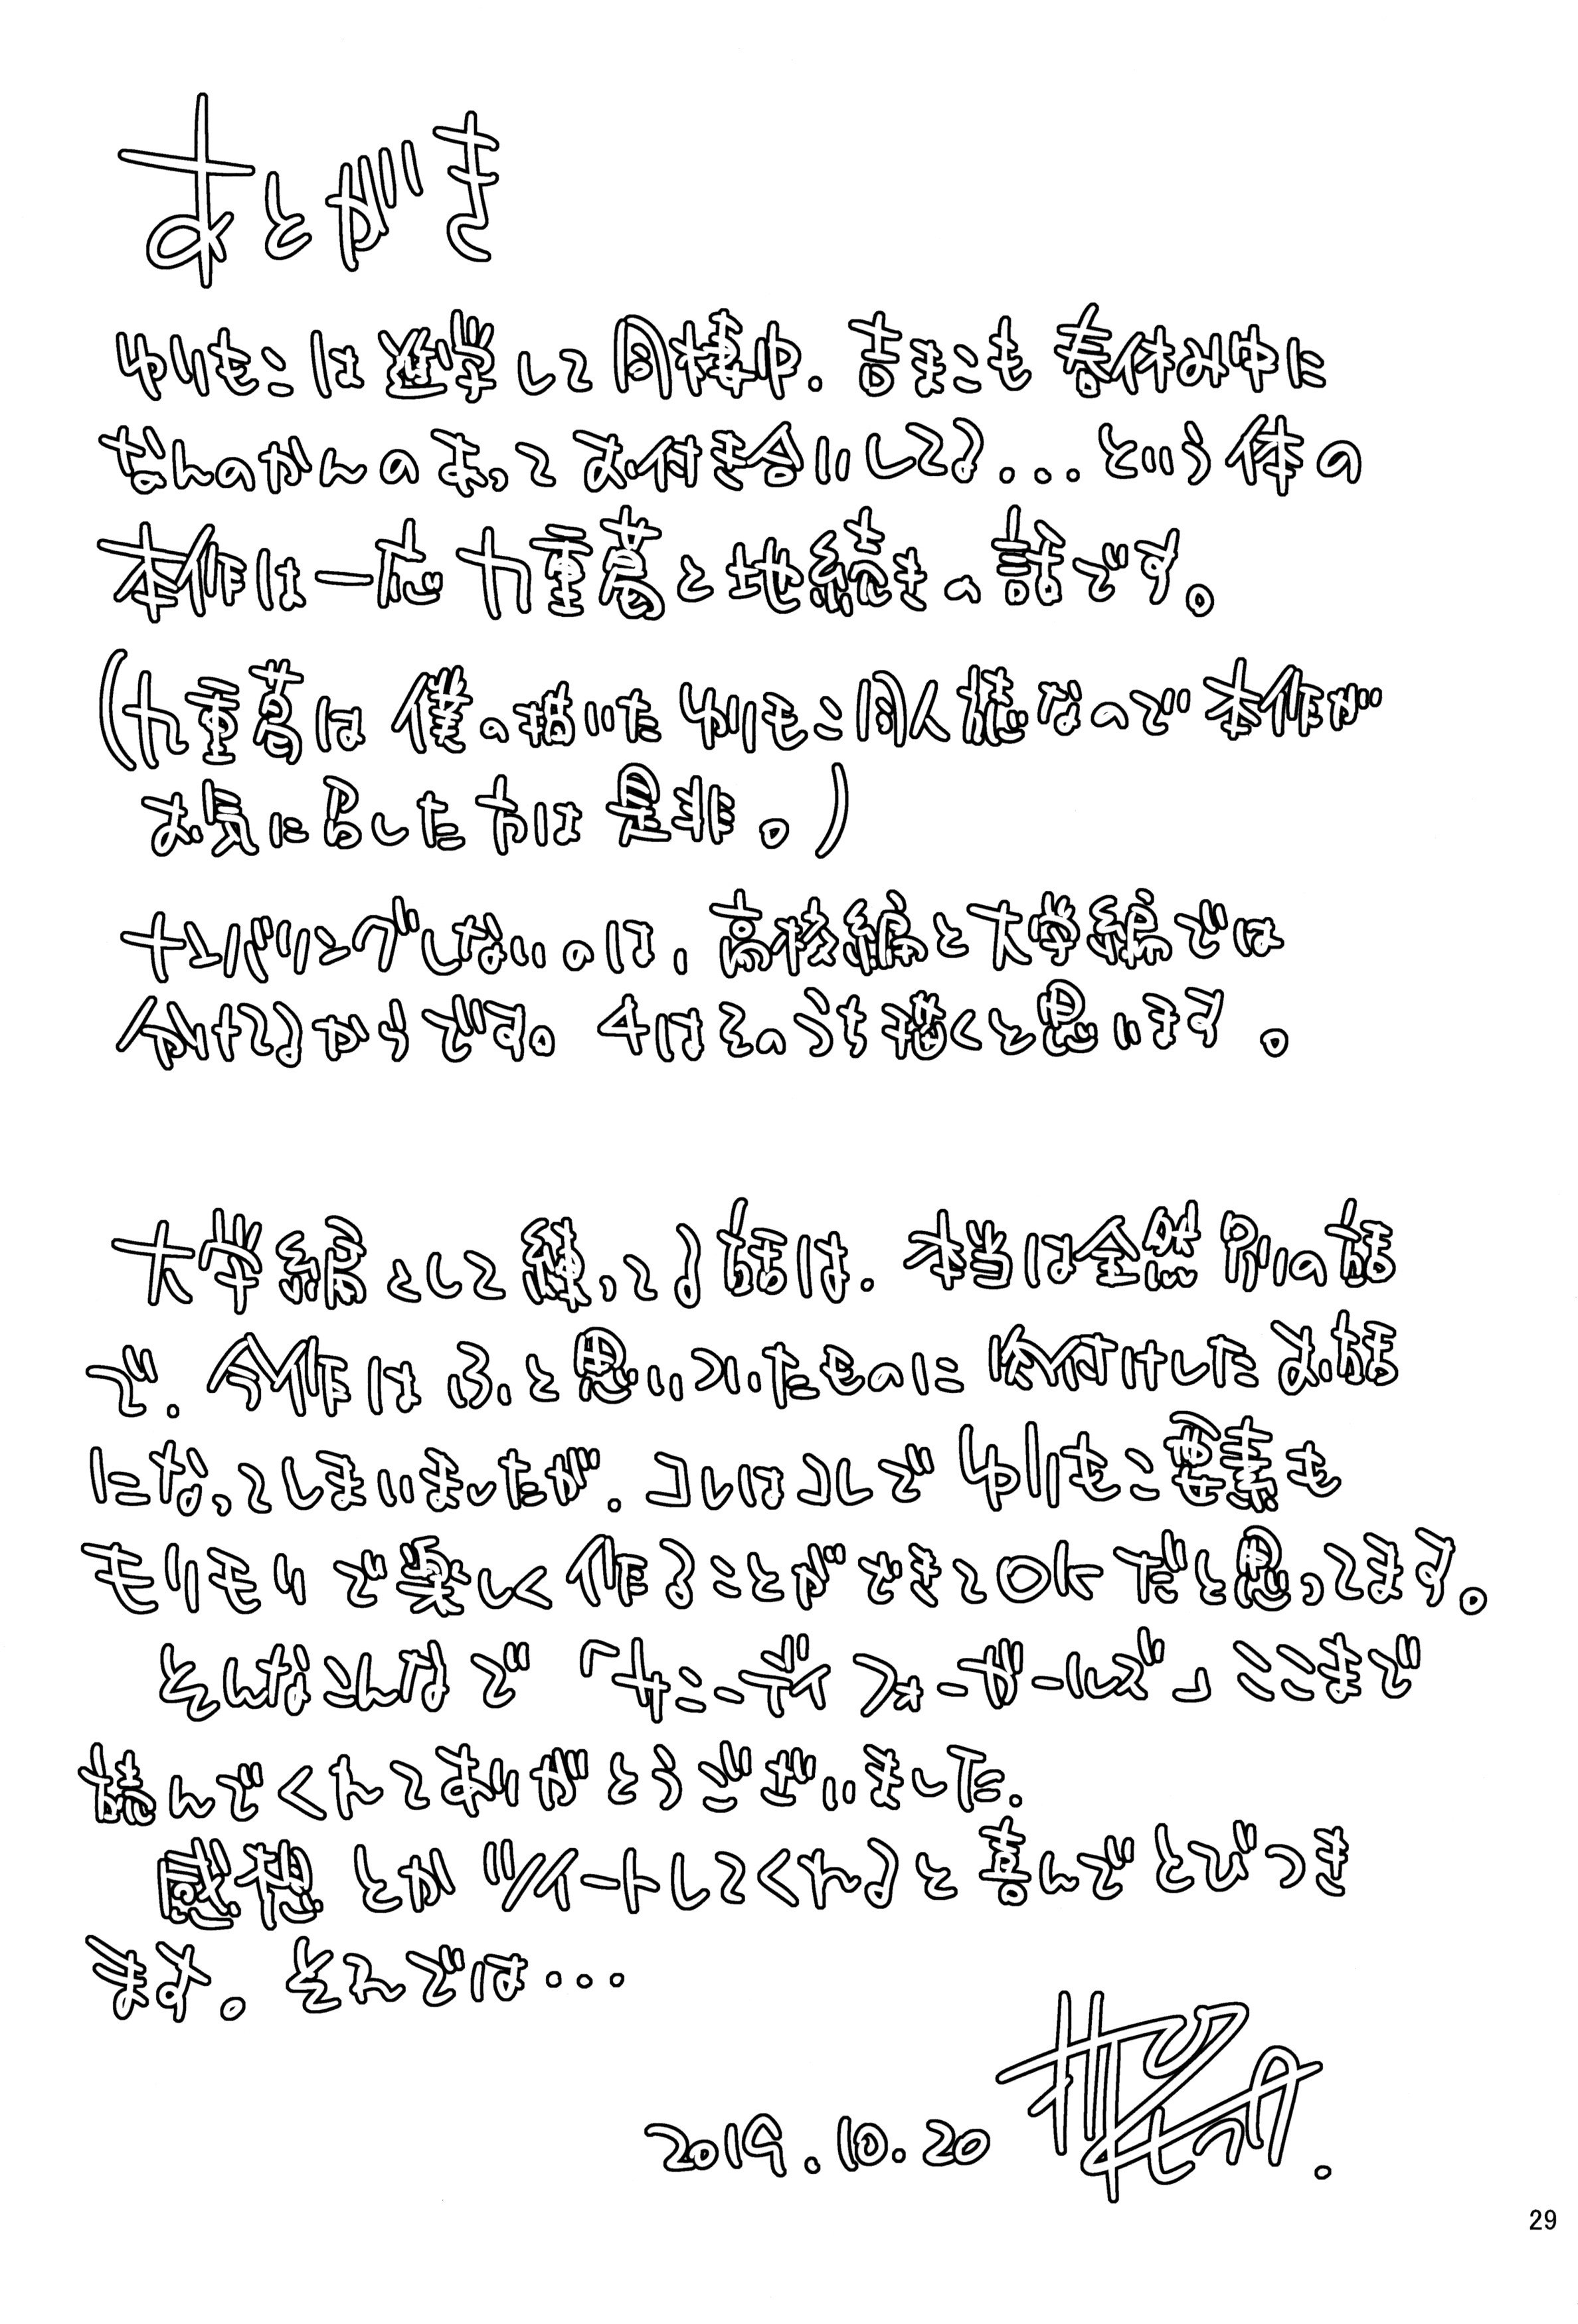 あとがき
ゆりもこは進学して同棲中.吉まこも春休み中に
なんのかんのあってお付き合いしてる...という体の
本作は一応九重葛と地続きの話です。
(九重葛は僕の描いたゆりもこ同人誌なので本作が
お気に召した方は是非。)
ナンバリングしないのは,高校編と大学編では
分けてるからです。4はそのうち描くと思います。
大学編として練ってる話は.本当は全然別の話
で.今作はふと思いついたものに肉付けしたお話
になってしまいましたが.コレはコレでゆりもこ要素も
モリモリで楽しく作ることができてOKだと思ってます。
そんなこんなで「サニーディフォーガールズ」ここまで
読んでくれてありがとうございました.
感想とかツイートしてくれると喜んでとびつき
ます。それでは...
2019.10.20
29